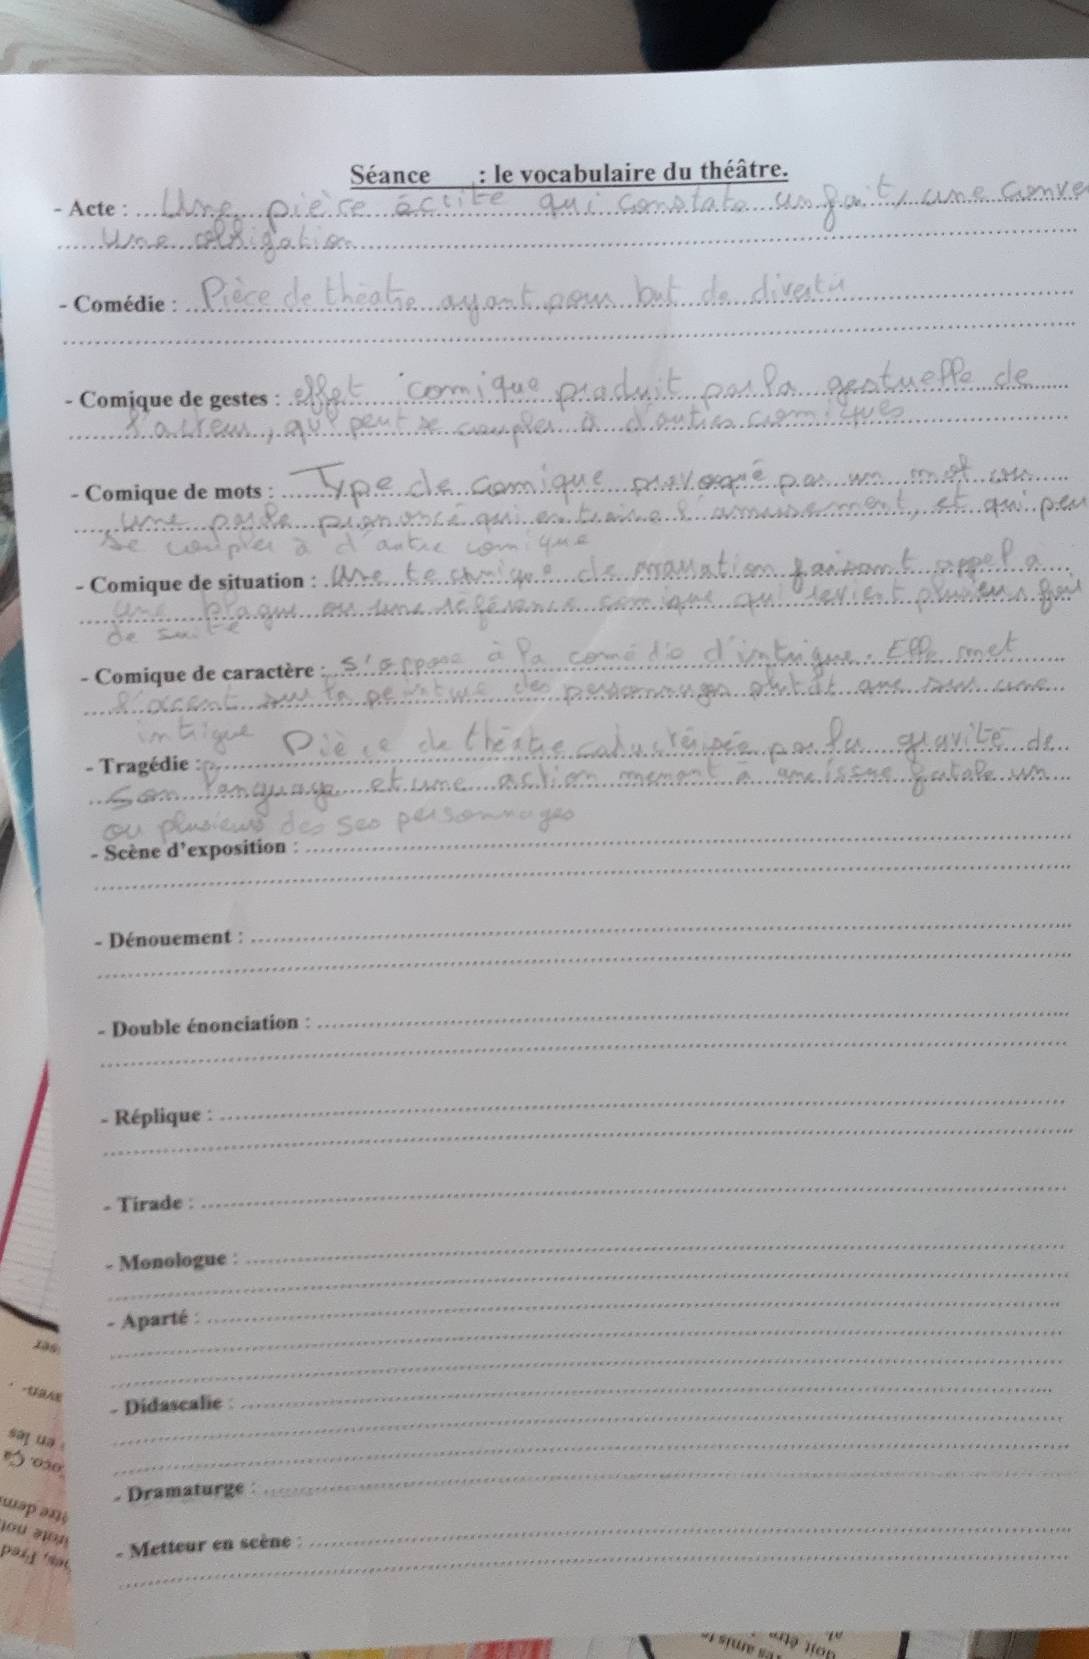 Séance : le vocabulaire du théâtre.
- Acte : Une pièce écrite qui constate un fait, une conve
une obligation
- Comédie : Pièce de théatre ayant pour but de divertir
- Comique de gestes : effet comique produit par la gestuelle de
l'acteur, qui peut se coupler à d'autres comiques
- Comique de mots : Type de comique provoqué par un mot ou
une parole prononcé qui entraine l'amusement, et qui peu
se coupler à d'autre comique
- Comique de situation : Une technique de narration faisant appel a
une blague ou une référence comique qui revient plusieurs fois
de suite
- Comique de caractère : s'oppose à la comédie d'intrigue. Elle met
l'accent sur la peinture des personnages plutôt que sur une
intrigue
- Tragédie : Pièce de théatre caractérisée par la gravité de
son language et une action menant à une issue fatale un
ou plusieurs des ses personnages
- Scène d'exposition :
- Dénouement :
- Double énonciation :
- Réplique :
- Tirade :
- Monologue :
- Aparté :
- Didascalie :
- Dramaturge :
- Metteur en scène :